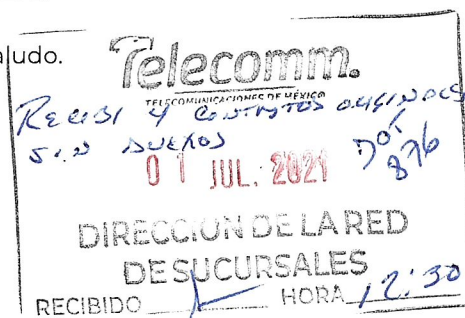 aludo.
Telecomm.
TELECOMUNICACIONES DE MÉXICO
RECIBI 4 CONTRATOS ORIGINALES
SIN ANEXOS
876
01 JUL. 2021
DIRECCION DE LA RED
DE SUCURSALES
RECIBIDO HORA 12:30